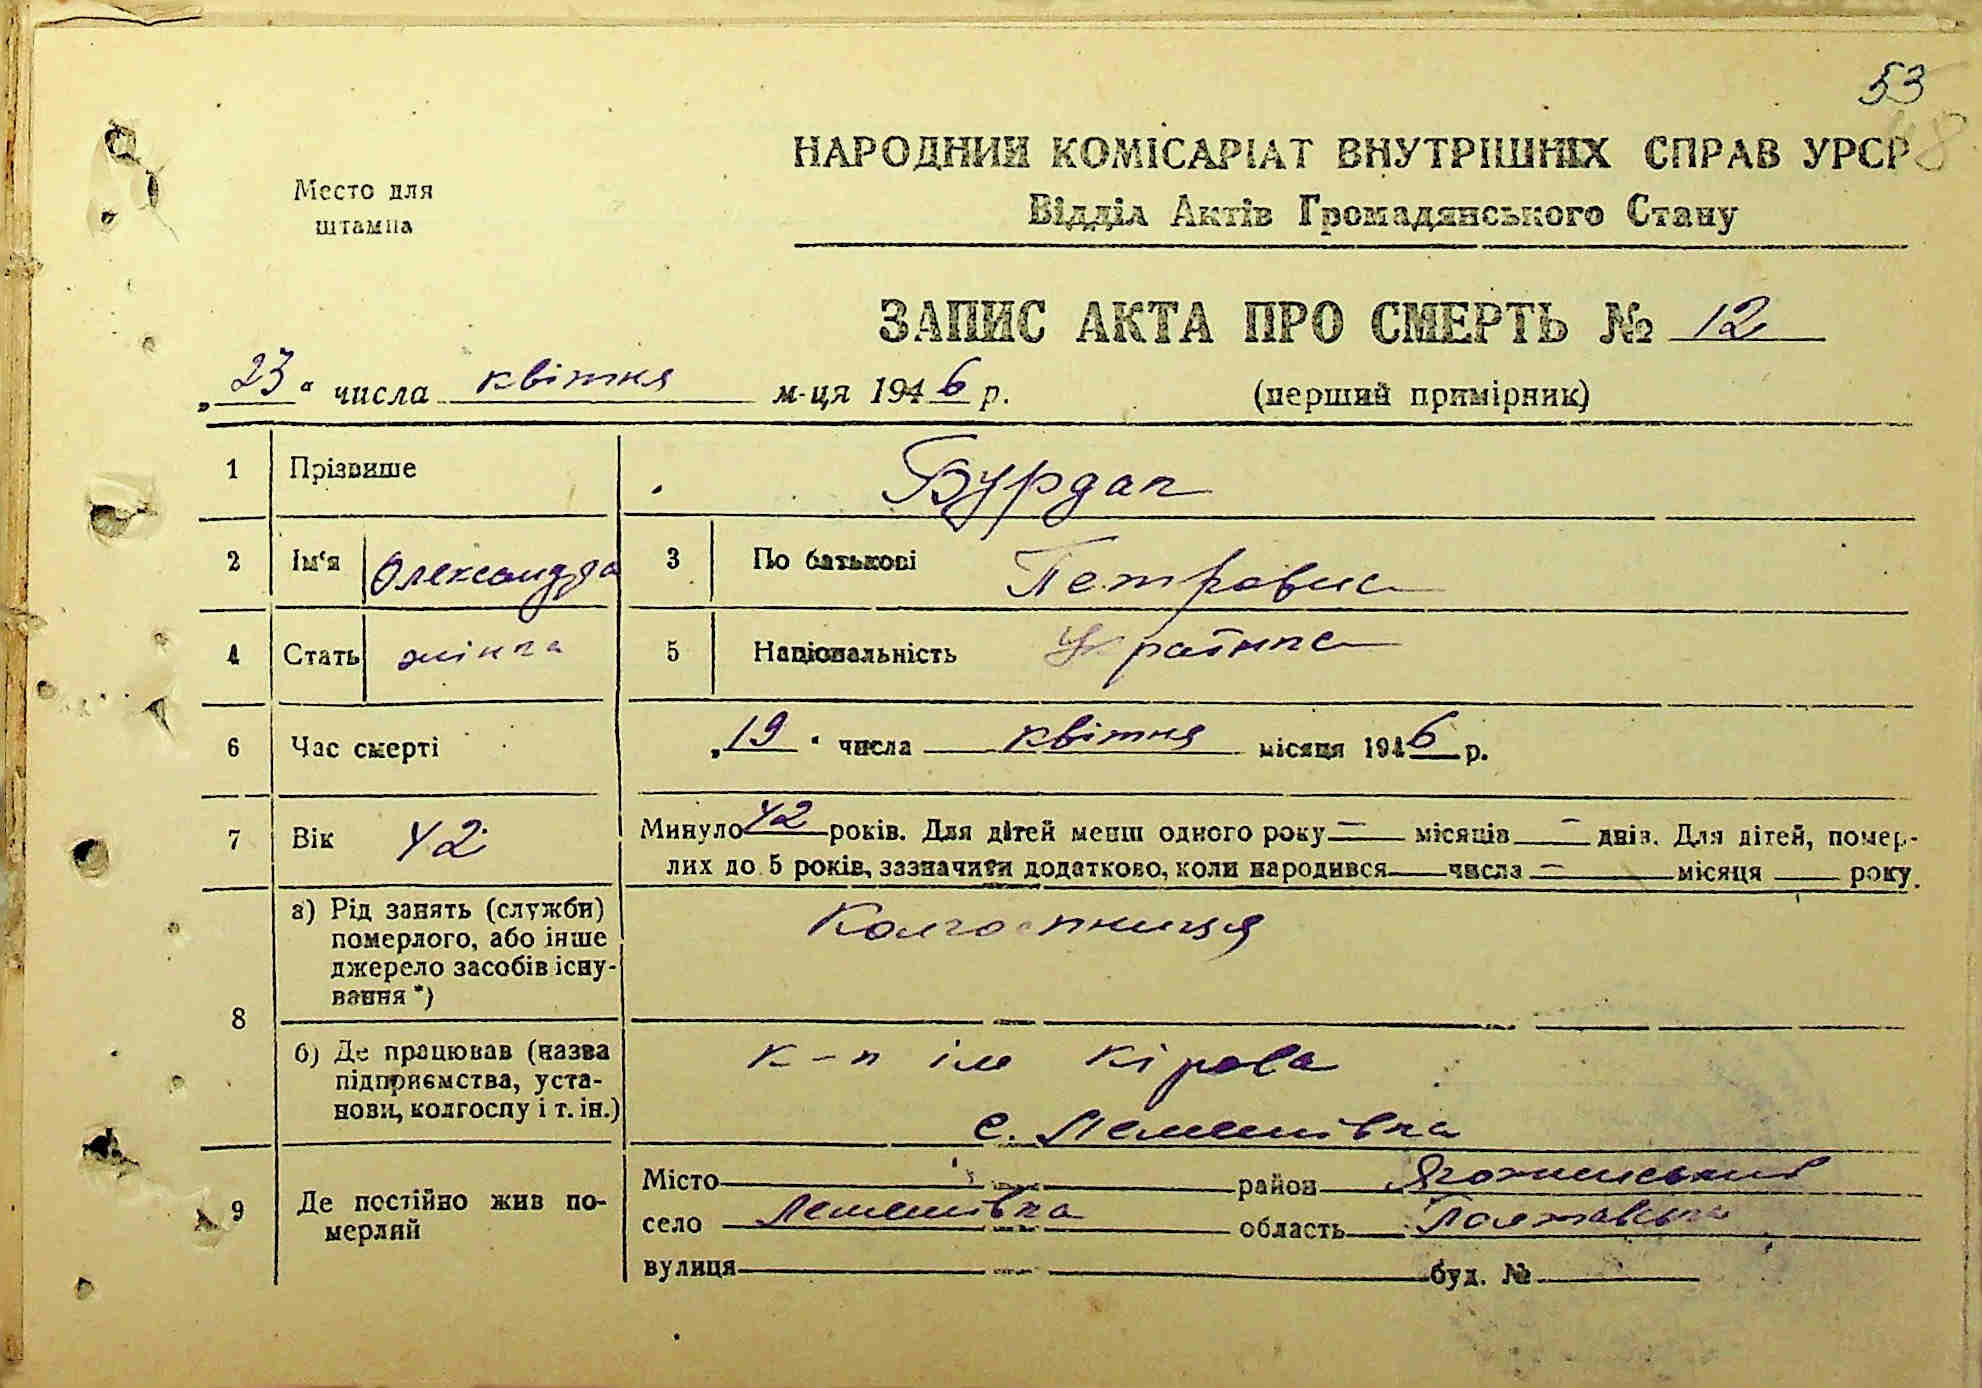 53
48
Место для
штампа
НАРОДНИЙ КОМІСАРІАТ ВНУТРІШНІХ СПРАВ УРСР
Відділ Актів Громадянського Стану
ЗАПИС АКТА ПРО СМЕРТЬ № 12
„23“ числа квітня м-ця 1946 р.
(перший примірник)
1 Прізвище Бурдак
2 Ім‘я Олександра 3 По батькові Петровна
4 Стать жінка 5 Національність Українка
6 Час смерті „19“ числа квітня місяця 1946 р.
7 Вік 42 Минуло 42 років. Для дітей менш одного року — місяців — днів. Для дітей, помер-
лих до 5 років, зазначити додатково, коли народився числа — місяця року.
8
а) Рід занять (служби)
померлого, або інше
джерело засобів існу-
вання*)
Колгоспниця
б) Де працював (назва
підприємства, уста-
нови, колгоспу і т. ін.)
к-п ім Кірова
с. Лемешівка
9 Де постійно жив по-
мерлий
Місто район Яготинський
село Лемешівка область Полтавська
вулиця буд. №